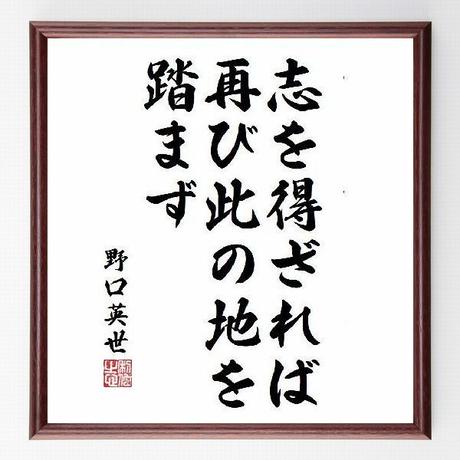 志を得ざれば
再び此の地を
踏まず
野口英世